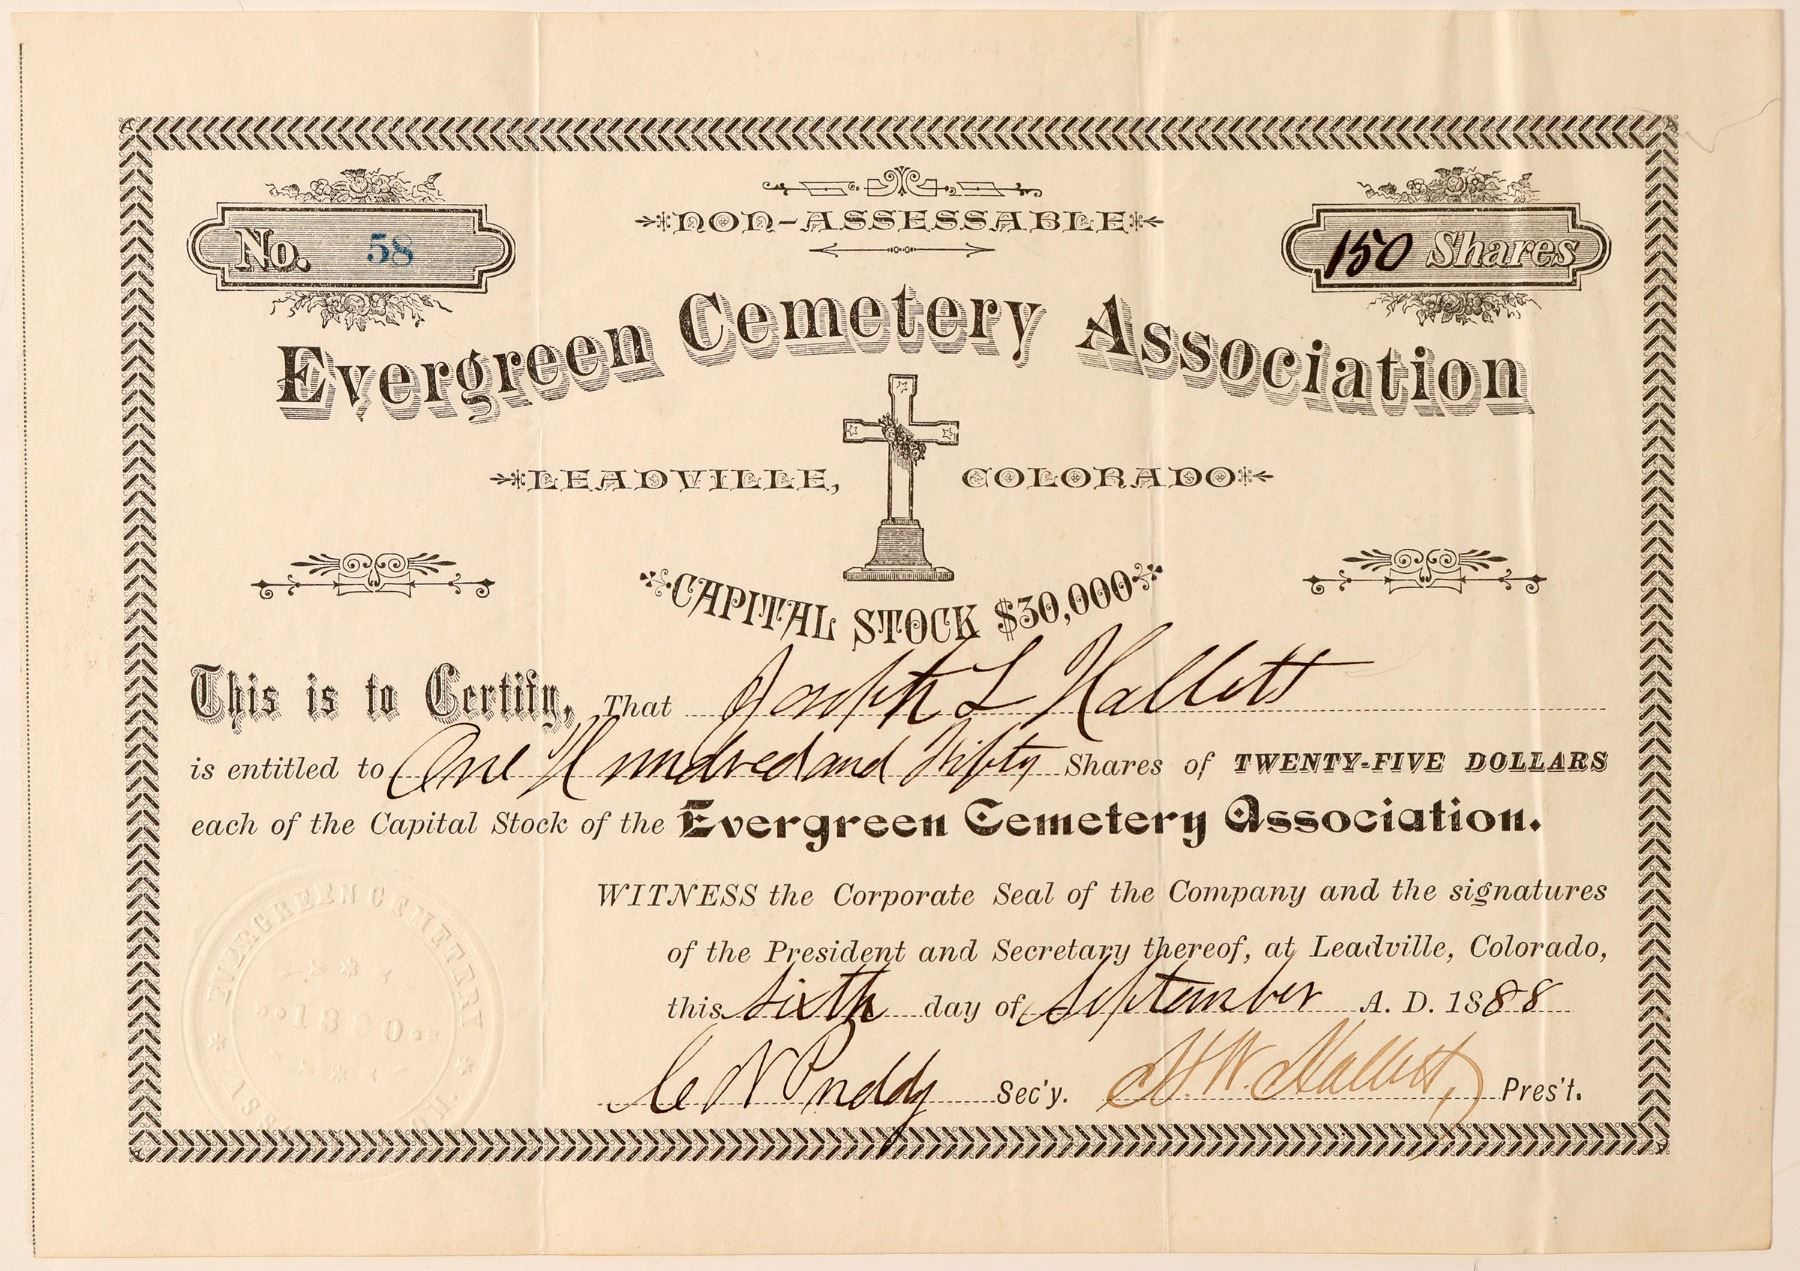 NON-ASSESSABLE
No. 58
150 Shares
Evergreen Cemetery Association
LEADVILLE, COLORADO
CAPITAL STOCK $30,000
This is to Certify, That Joseph L Hallett
is entitled to One Hundred and Fifty Shares of TWENTY-FIVE DOLLARS
each of the Capital Stock of the Evergreen Cemetery Association.
WITNESS the Corporate Seal of the Company and the signatures
of the President and Secretary thereof, at Leadville, Colorado,
this sixth day of September A. D. 1888
C N Priddy Sec'y. Hallett, Pres't.
EVERGREEN CEMETERY
1880